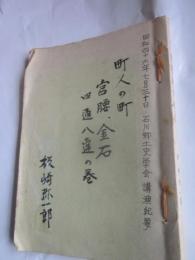 昭和四十六年七月三十日・石川郷土史学会 講演記要
町人の町
宮腰、金石
四通八達の巻